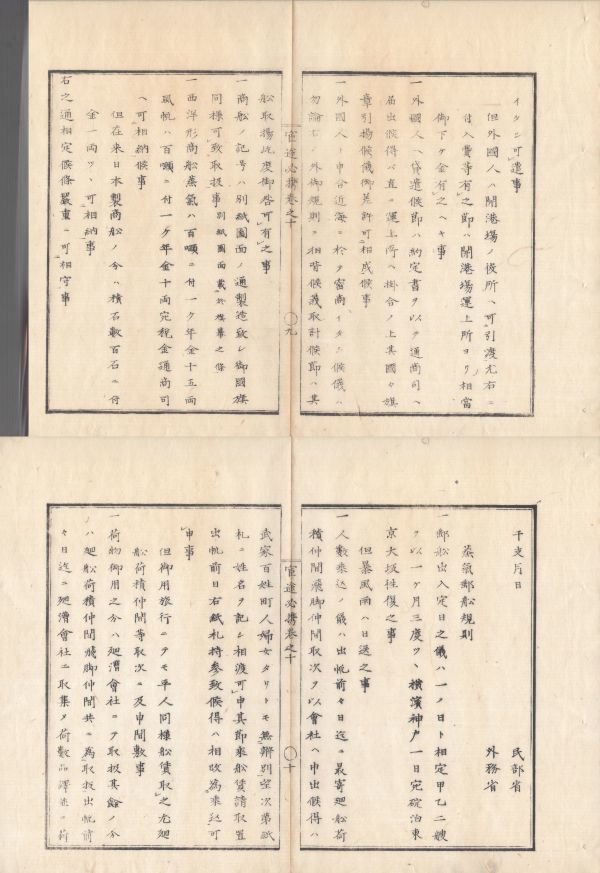 イタシ可遣事
但外國人ハ開港場ノ役所ヘ可引渡尤右ニ
付入費等有之節ハ開港場運上所ヨリ相當
御下ケ金有之ヘキ事
一外國人ヘ貸遣候節ハ約定書ヲ以テ通商司ヘ
届出候得ハ直ニ運上所ヘ掛合ノ上其國々旗
章引揚候儀御差許可相成候事
一外國人ト申合近海ニ於テ商賣イタシ候儀ハ
勿論右ノ外御規則ニ相背候義取計候節ハ其
舩取揚此度御咎可有之事
一商舩ノ記号ハ別紙圖面ノ通製造致シ御國旗
同様可致取扱事 別紙圖面載於旗章之條
一西洋形商舩蒸氣ハ百噸ニ付一ケ年金十五両
風帆ハ百噸ニ付一ケ年金十両宛税金通商司
ヘ可相納候事
但在来日本製商舩ノ分ハ積石數百石ニ付
金一両ツヽ可相納事
右之通相定候條嚴重ニ可相守事
官途必携巻之十
〇九
干支月日
民部省
外務省
蒸氣郵舩規則
一郵舩出入定日之儀ハ一ノ日ト相定甲乙二艘
ヲ以一ケ月三度ツヽ横濱神戸一日宛碇泊東
京大坂往復之事
但暴風雨ハ日送之事
一人數乘込ノ儀ハ出帆前々日迄ニ最寄廻舩荷
積仲間飛脚仲間取次ヲ以會社ヘ申出候得ハ
武家百姓町人婦女タリトモ無辨別望次第紙
札ニ姓名ヲ記シ相渡可申其節乘舩賃請取置
出帆前日右紙札持参致候得ハ相改為乘込可
申事
但御用旅行ニテモ平人同様舩賃取之尤廻
舩荷積仲間等取次ニ及申間敷事
一荷物御用之分ハ廻漕會社ニテ取扱其餘ノ分
ハ廻舩荷積仲間飛脚仲間共ニ為取扱出帆前
々日迄ニ廻漕會社ニ取集メ荷數品譯
官途必携巻之十
〇十